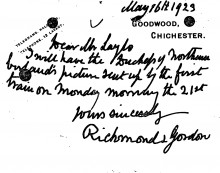 May 16th 1923
GOODWOOD,
CHICHESTER.
Dear Mr Laylo
I will have the Duchess of Northum
berland's picture sent up by the first
train on Monday morning the 21st
Yours sincerely
Richmond & Gordon